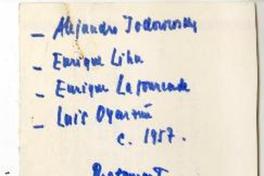 – Alejandro Jodorowsky
– Enrique Lihn
– Enrique Lafourcade
– Luis Oyarzún
c. 1957.